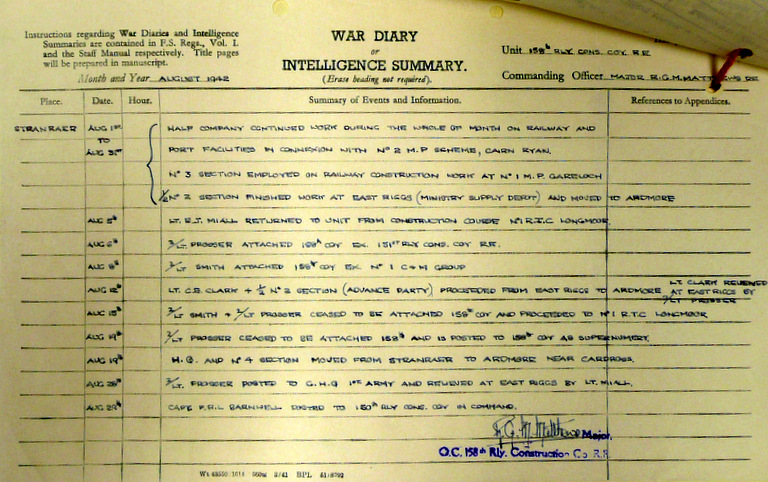 Instructions regarding War Diaries and Intelligence
Summaries are contained in F.S. Regs., Vol. I.
and the Staff Manual respectively. Title pages
will be prepared in manuscript.
Month and Year AUGUST 1942
WAR DIARY
or
INTELLIGENCE SUMMARY.
(Erase heading not required).
Unit 158th RLY. CONS. COY. R.E.
Commanding Officer MAJOR R.G.M. MATTHEWS RE
Place. Date. Hour. Summary of Events and Information. References to Appendices.
STRANRAER AUG 1st HALF COMPANY CONTINUED WORK DURING THE WHOLE OF MONTH ON RAILWAY AND
TO
AUG 31st PORT FACILITIES IN CONNEXION WITH No 2 M.P SCHEME, CAIRN RYAN.
No 3 SECTION EMPLOYED ON RAILWAY CONSTRUCTION WORK AT No 1 M.P. GARELOCH
½ No 2 SECTION FINISHED WORK AT EAST RIGGS (MINISTRY SUPPLY DEPOT) AND MOVED TO ARDMORE
AUG 5th LT. E.J. MIALL RETURNED TO UNIT FROM CONSTRUCTION COURSE No 1 R.T.C LONGMOOR.
AUG 6th 2/LT. PROSSER ATTACHED 158th COY EX. 151st RLY CONS. COY R.E.
AUG 8th 2/LT SMITH ATTACHED 158th COY EX No 1 C & M GROUP
AUG 12th LT. C.B. CLARK + ½ No 2 SECTION (ADVANCE PARTY) PROCEEDED FROM EAST RIGGS TO ARDMORE LT. CLARK RELIEVED
AT EAST RIGGS BY
2/LT PROSSER
AUG 15th 2/LT SMITH + 2/LT PROSSER CEASED TO BE ATTACHED 158th COY AND PROCEEDED TO No 1 R.T.C LONGMOOR
AUG 19th 2/LT PROSSER CEASED TO BE ATTACHED 158th AND IS POSTED TO 158th COY AS SUPERNUMERY.
AUG 19th H.Q. AND No 4 SECTION MOVED FROM STRANRAER TO ARDMORE NEAR CARDROSS.
2/LT. PROSSER POSTED TO G.H.Q 1st ARMY AND RELIEVED AT EAST RIGGS BY LT. MIALL.
CAPT BARNWELL POSTED TO RLY CONS. COY IN COMMAND.
R. G. M. Matthews Major.
O.C. 158th Rly. Construction Co. R.E.